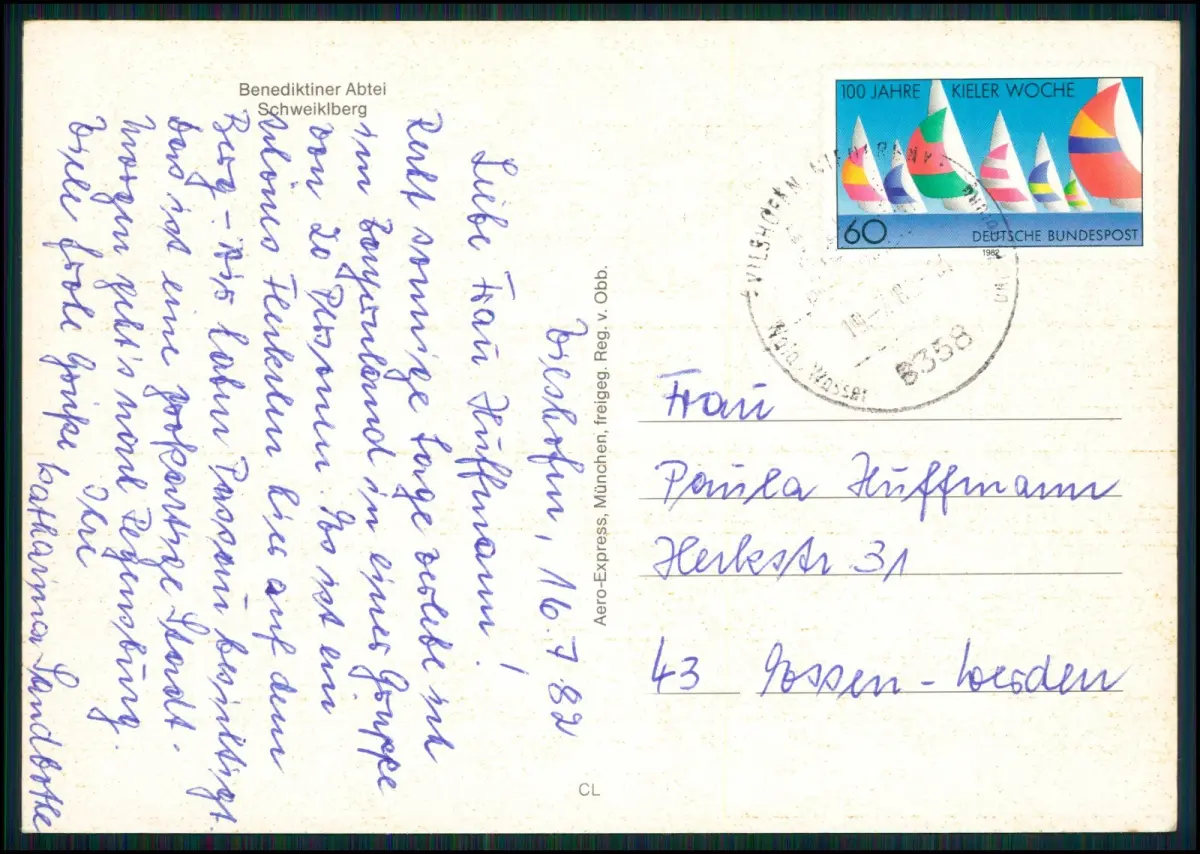 Benediktiner Abtei
Schweiklberg
Vilshofen, 16.7.82
Liebe Frau Huffmann!
Recht sonnige Tage verlebe ich
im Bayernland in einer Gruppe
von 20 Personen. Es ist ein
schönes Fleckchen hier auf dem
Berg - Wir haben Passau besichtigt.
Das ist eine großartige Stadt.
Morgen geht's nach Regensburg.
Viele frohe Grüße
Ihre
Katharina Sandbothe
Aero-Express, München, freigeg. Reg. v. Obb.
CL
100 JAHRE KIELER WOCHE
60
DEUTSCHE BUNDESPOST
1982
VILSHOFEN
8358
Frau
Paula Huffmann
Herkstr 31
43 Essen-Werden